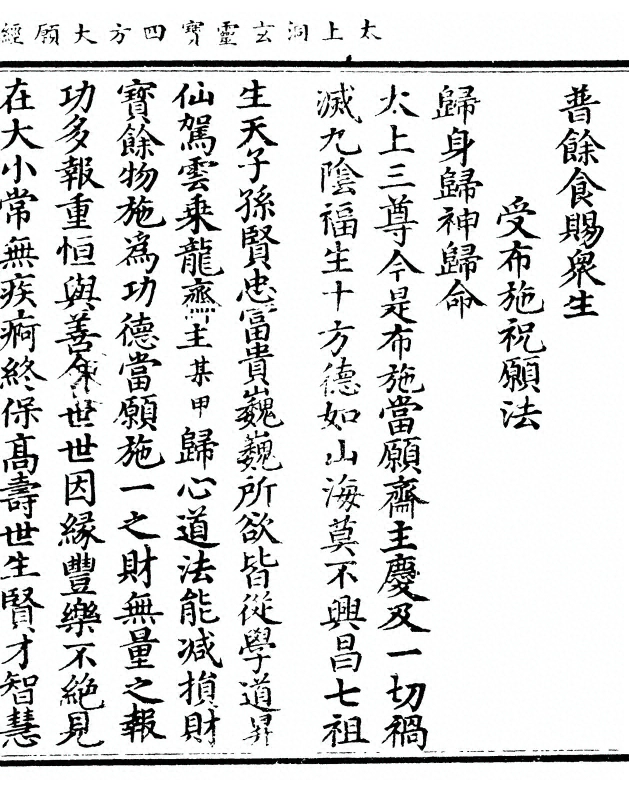 太上洞玄靈寶四方大願經
普餘食賜衆生
受布施祝願法
歸身歸神歸命
太上三尊今是布施當願齋主慶及一切禍
滅九陰福生十方德如山海莫不興昌七祖
生天子孫賢忠富貴巍巍所欲皆從學道昇
仙駕雲乘龍齋主某甲歸心道法能减損財
寶餘物施爲功德當願施一之財無量之報
功多報重恒與善世世因緣豐樂不絶見
在大小常無疾痾終保髙壽世生賢才智慧